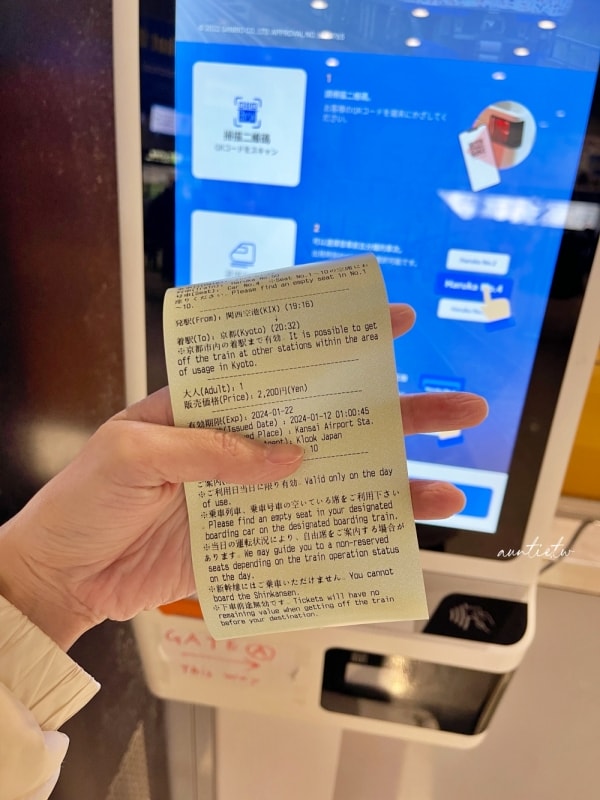 1
請掃描二維碼
QRコードをスキャン
お客様のQRコードを端末にかざしてく
ださい。
2
Haruka No.2
Haruka No.4
Car No.4, Seat No.1~10
Please find an empty seat in No.1
~10.
発駅(From): 関西空港(KIX) (19:16)
↓
着駅(To): 京都(Kyoto) (20:32)
※京都市内の着駅まで有効. It is possible to get
off the train at other stations within the area
of usage in Kyoto.
大人(Adult): 1
販売価格(Price): 2,200円(Yen)
有効期限(Exp): 2024-01-22
(Issued Date) : 2024-01-12 01:00:45
Place) : Kansai Airport Sta.
: Klook Japan
10
ご案内
※ご利用日当日に限り有効. Valid only on the day
of use.
※乗車列車、乗車号車の空いている席をご利用下さい
. Please find an empty seat in your designated
boarding car on the designated boarding train.
※当日の運転状況により、自由席をご案内する場合が
あります. We may guide you to a non-reserved
seats depending on the train operation status
on the day.
※新幹線にはご乗車いただけません. You cannot
board the Shinkansen.
※下車前途無効です. Tickets will have no
remaining value when getting off the train
before your destination.
auntietw
GATE A
THIS WAY